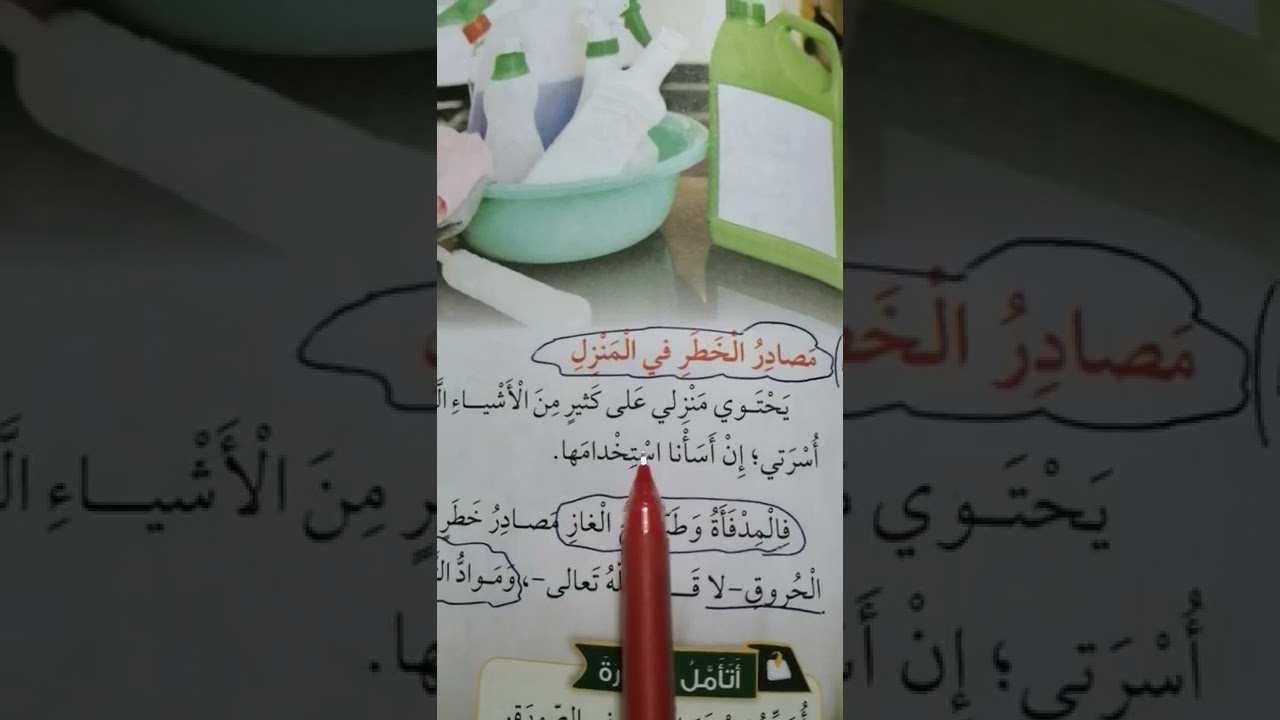 مَصادِرُ الْخَطَرِ في الْمَنْزِلِ
يَحْتَـوي مَنْزِلي عَلى كَثيرٍ مِنَ الْأَشْيـاءِ
أُسْرَتي؛ إِنْ أَسَأْنا اسْتِخْدامَها.
فَالْمِدْفَأَةُ الْغازِ مَصـادِرُ خَطَرٍ
الْحُروقِ -لا اللّٰهُ تَعالى-، وَمَـوادُّ
أَتَأَمَّلُ